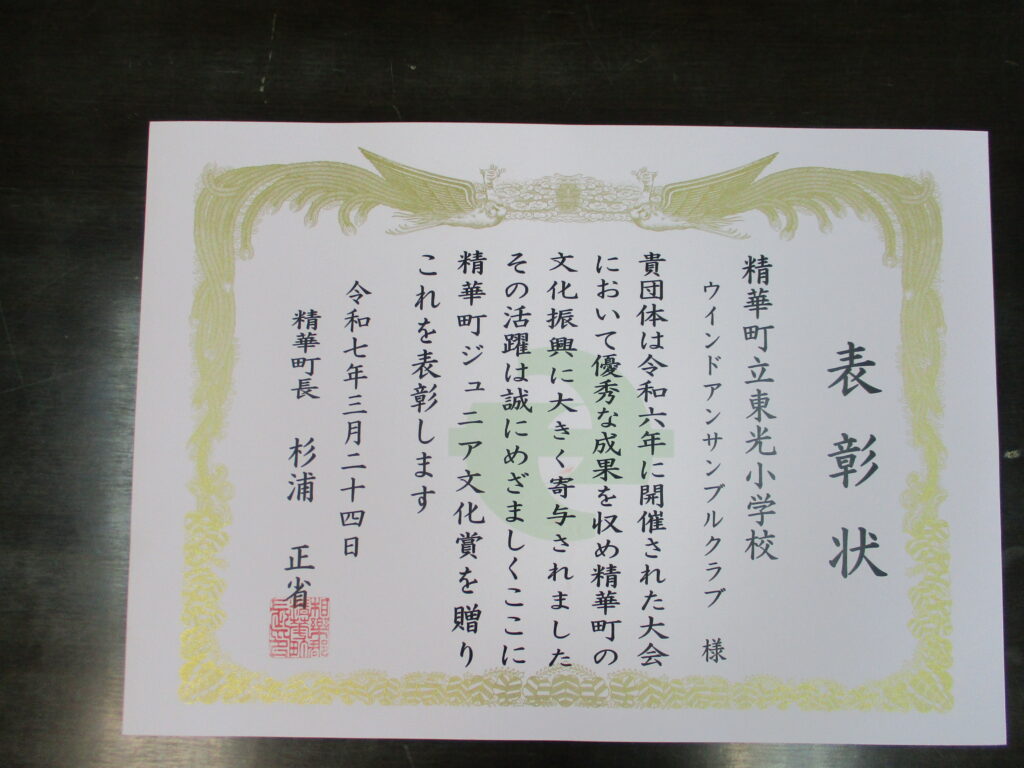 表彰状
精華町立東光小学校
ウインドアンサンブルクラブ 様
貴団体は令和六年に開催された大会
において優秀な成果を収め精華町の
文化振興に大きく寄与されました
その活躍は誠にめざましくここに
精華町ジュニア文化賞を贈り
これを表彰します
令和七年三月二十四日
精華町長 杉浦 正省